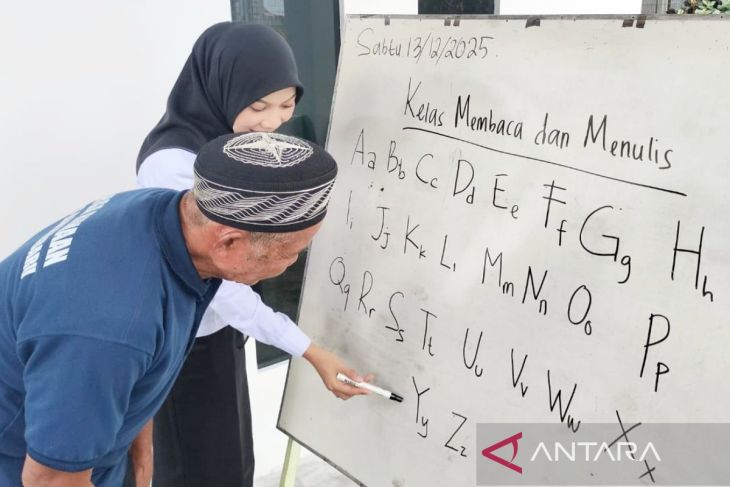 Sabtu 13/12/2025.
Kelas Membaca dan Menulis
Aa Bb Cc Dd Ee Ff Gg Hh
Ii Jj Kk Ll Mm Nn Oo Pp
Qq Rr Ss Tt Uu Vv Ww Xx
Yy Zz
ANTARA